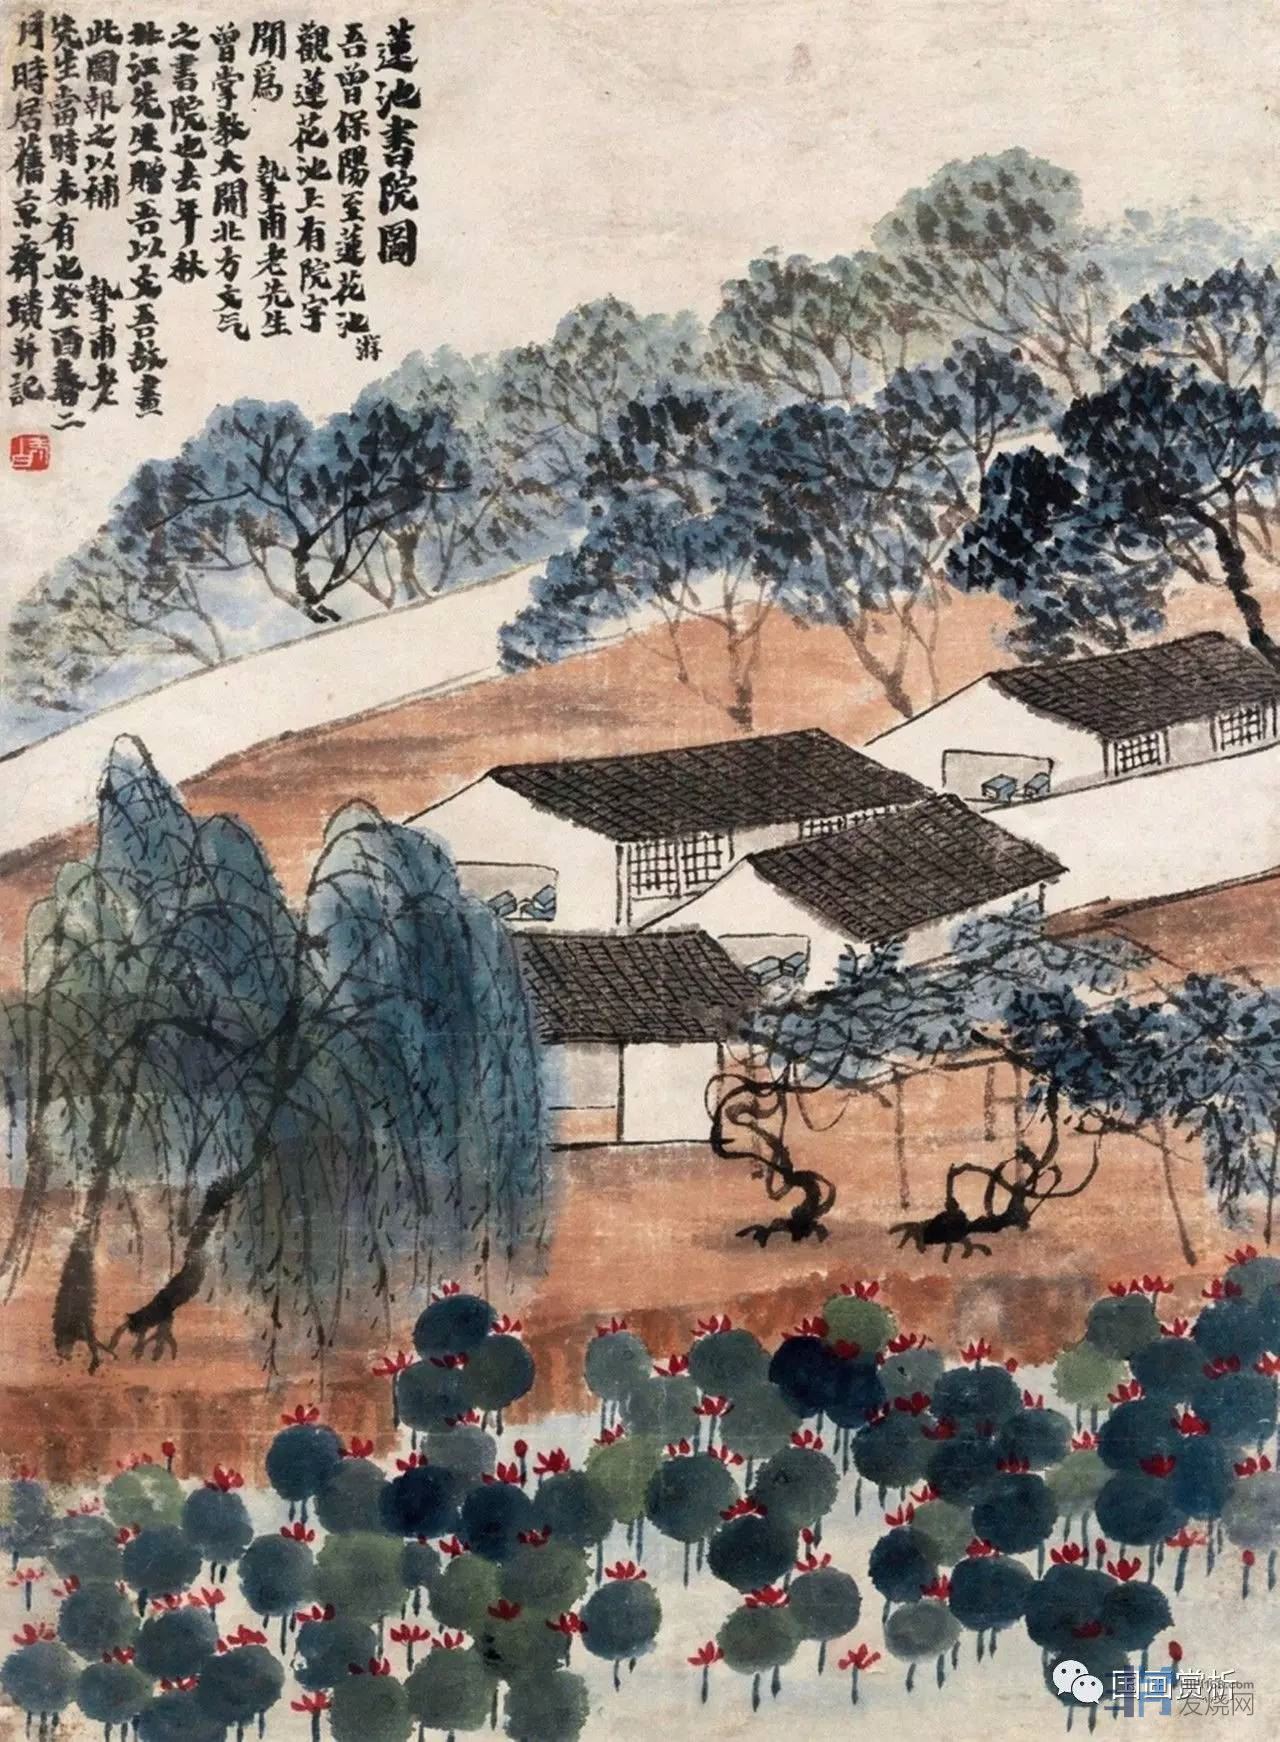 蓮池書院圖
吾曾保陽至蓮花池
游
觀蓮花池上有院宇
聞為 摯甫老先生
曾掌教大開北方文气
之書院也去年秋
北江先生贈吾以文吾故畫
此圖報之以補 摯甫老
先生當時未有也癸酉春二
月時居舊京齊璜并記
国画赏析
发烧网